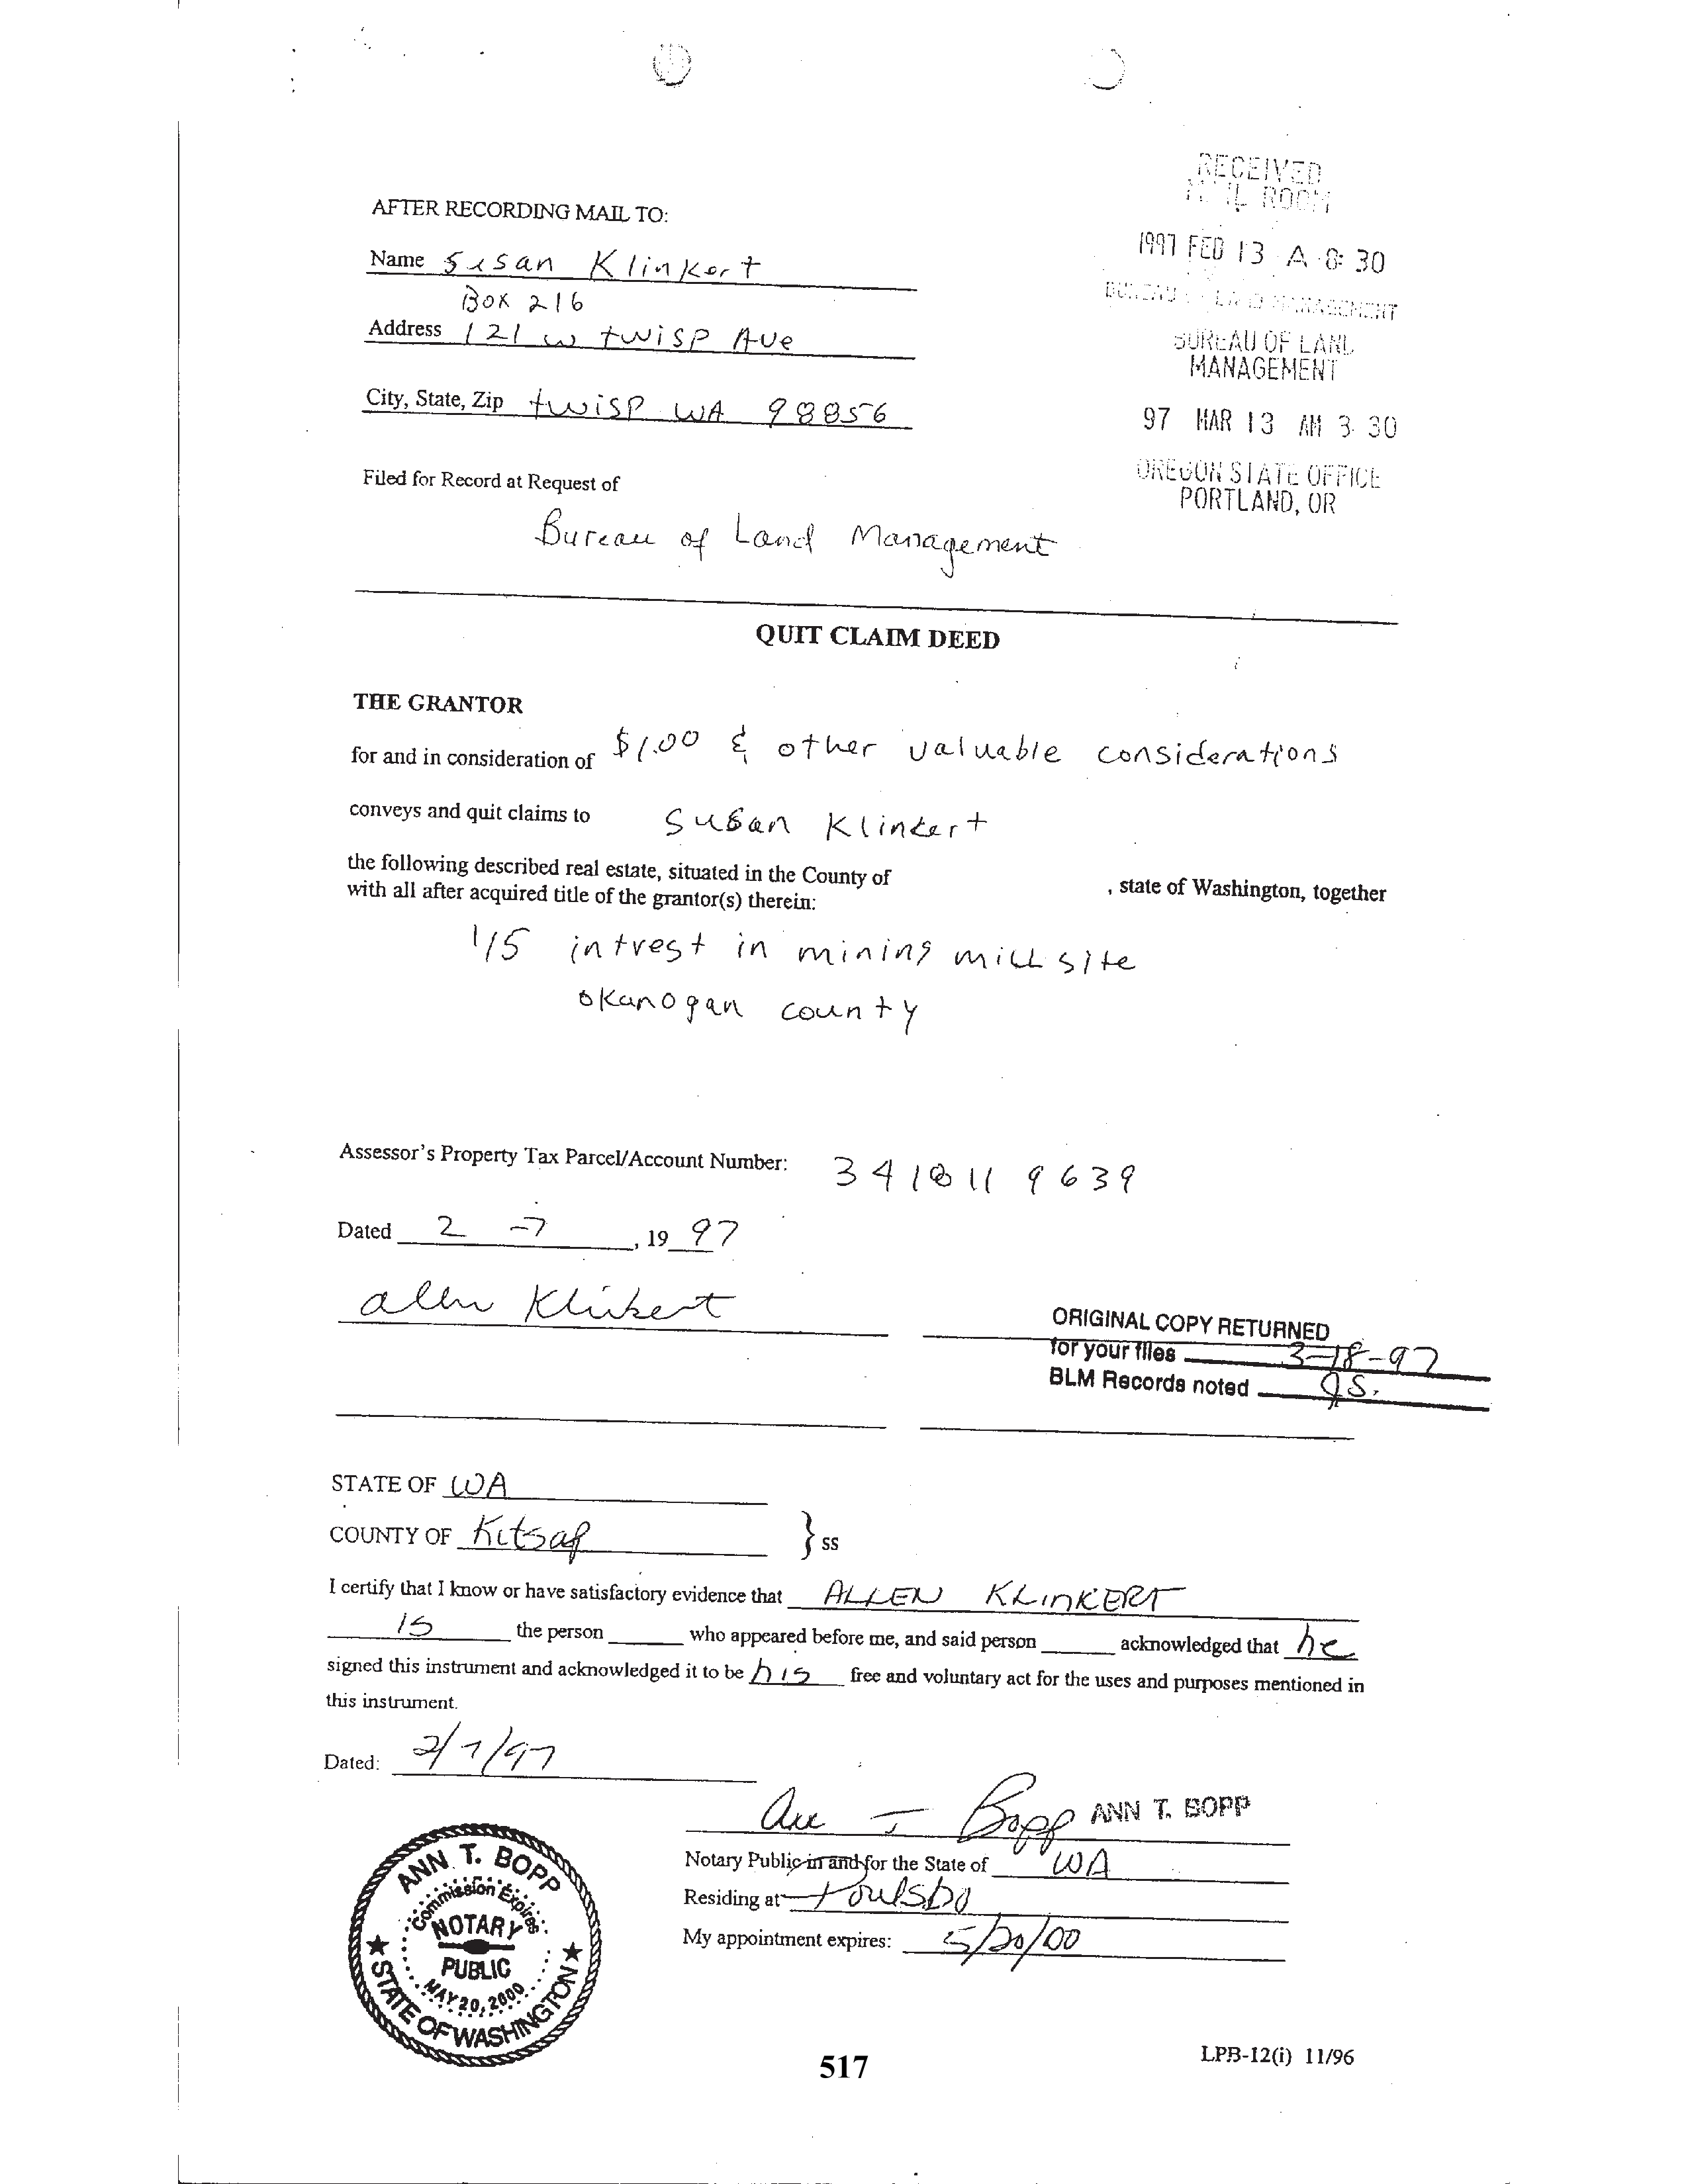 RECEIVED
MAIL ROOM
AFTER RECORDING MAIL TO:
1997 FEB 13 A 8:30
Name Susan Klinkert
BUREAU OF LAND MANAGEMENT
Box 216
Address 121 w twisp Ave
BUREAU OF LAND
MANAGEMENT
City, State, Zip twisp WA 98856
97 MAR 13 AM 3:30
Filed for Record at Request of
OREGON STATE OFFICE
PORTLAND, OR
Bureau of Land Management
QUIT CLAIM DEED
THE GRANTOR
for and in consideration of $1.00 & other valuable considerations
conveys and quit claims to Susan Klinkert
the following described real estate, situated in the County of , state of Washington, together
with all after acquired title of the grantor(s) therein:
1/5 intrest in mining mill site
okanogan county
Assessor's Property Tax Parcel/Account Number: 341811 9639
Dated 2 -7, 19 97
allen Klinkert
ORIGINAL COPY RETURNED
for your files 3-18-97
BLM Records noted
STATE OF WA
COUNTY OF Kitsap } ss
I certify that I know or have satisfactory evidence that ALLEN KLINKERT
is the person who appeared before me, and said person acknowledged that he
signed this instrument and acknowledged it to be his free and voluntary act for the uses and purposes mentioned in
this instrument.
Dated: 2/7/97
Ann T Bopp ANN T. BOPP
Notary Public in and for the State of WA
Residing at Poulsbo
My appointment expires: 5/20/00
ANN T. BOPP
Commission Expires
NOTARY
PUBLIC
MAY 20, 2000
STATE OF WASHINGTON
517
LPB-12(i) 11/96